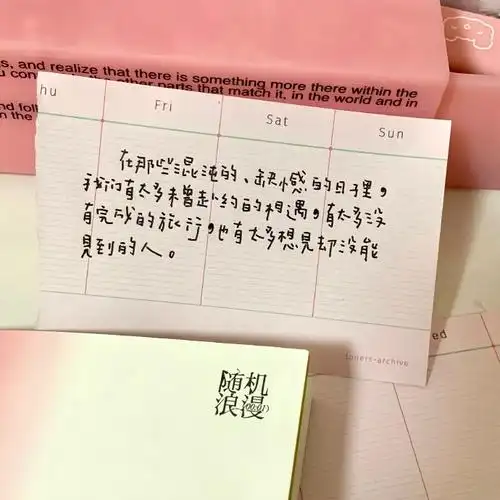 s, and realize that there is something more there within the
in the other parts that match it, in the world and in
nd foll
n the
hu
Fri
Sat
Sun
在那些混沌的、缺憾的日子里，
我们有太多未曾赴约的相遇，有太多没
有完成的旅行，也有太多想見却没能
見到的人。
loners-archive
ed
随机
浪漫